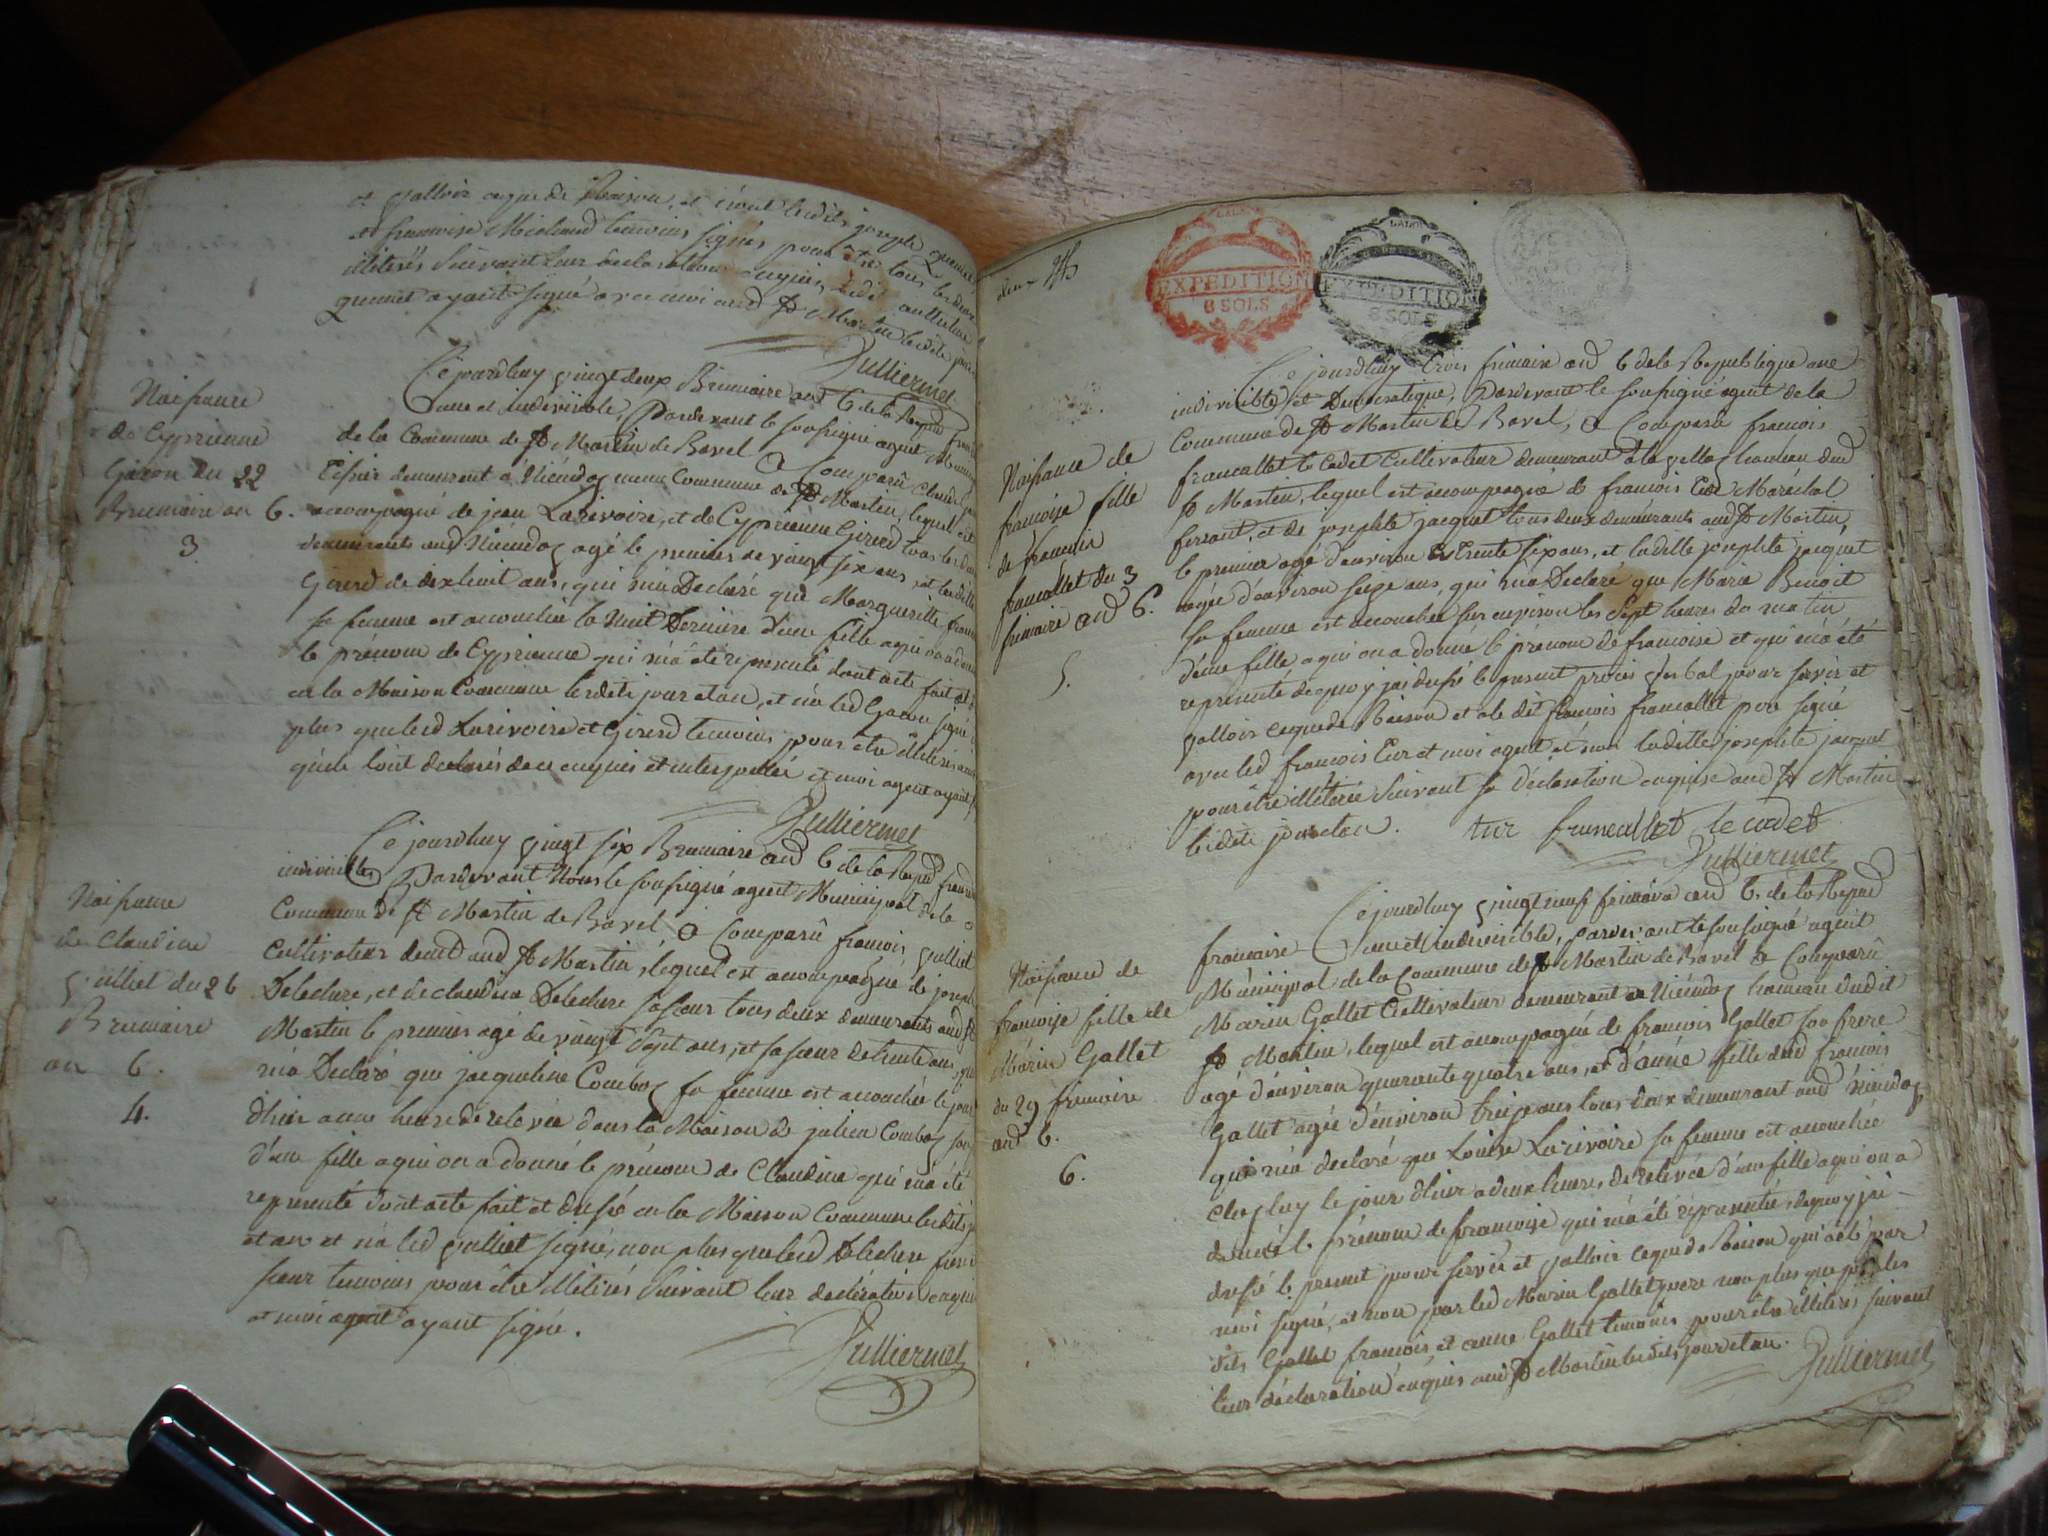 et valloir ceque de Raison, et n'ont lesdits joseph quemet
et francoise Michaud temoins signés pour être tous les deux
illiterés suivant leur declaration enquis ledit
quemet ayant signé avec moi aud St Martin lesdits jour
Julliermet
Naissance
de Cyprienne
Gacon du 22
Brumaire an 6.
3
Ce jourdhuy vingt deux Brumaire and 6 de la Repud
une et indivisible, Pardevant le sousigné agent
de la Commune de St Martin de Bavel a Comparû Claude
Tissier demeurant à Viéudoz meme Commune de St Martin, lequel est
accompagné de jean Larivoire, et de Cyprienne Girerd tous les deux
demeurants aud Viéudoz agé le premier de vingt six ans, et ladite
Girerd de dixhuit ans, qui m'a Déclaré que Marguerite
sa femme est accouchée la Nuit Derniere d'une fille a qui on a donné
le prénom de Cyprienne qui m'a été representé dont acte fait et
en la Maison Commune lesdits jour et an, et n'a led Gacon signé
plus que led Larivoire et Girerd temoins pour être illiterés
qu'ils l'ont declarés de ce enquis et interpellés et moi agent ayant
Julliermet
Naissance
de Claudine
vulliet du 26
Brumaire
an 6.
4.
Ce jourdhuy vingt six Brumaire and 6 de la Repud
indivisible, Pardevant Nous le sousigné agent Municipal de la
Commune de St Martin de Bavel a Comparû francois vulliet
Cultivateur demt aud St Martin, lequel est accompagné de joseph
Deleclure, et de claudine Deleclure sa sœur tous deux demeurants aud St
Martin le premier agé de vingt sept ans, et sa sœur de trente ans, qui
m'a Declaré que jacqueline Comboz sa femme est accouchée le jour
d'hier a une heure de relevée dans la Maison de julien Comboz son
d'une fille a qui on a donné le prénom de Claudine qui m'a été
representé dont acte fait et dressé en la Maison Commune lesdits jour
et an et n'a led vulliet signé, non plus que led Deleclure frere
sœur temoins pour être illiterés suivant leur declaration enquis
et moi agent ayant signé.
Julliermet
deux
LAIN
EXPEDITION
8 SOLS
EXPEDITION
8 SOLS
Naissance de
francoise fille
de francois
francallet du 3
frimaire and 6.
5.
Ce jourdhuy trois frimaire and 6 de la Republique une
indivisible et Démocratique, Pardevant le sousigné agent de la
Commune de St Martin de Bavel, a Comparû francois
francallet le Cadet Cultivateur demeurant à la vellaz hameau dud
St Martin, lequel est accompagné de francois Eur Maréchal
ferrant, et de josephte jacquet tous deux demeurants aud St Martin,
le premier agé d'environ trente six ans, et ladette josephte jacquet
agée d'environ seze ans, qui m'a Declaré que Marie Benoit
sa femme est accouchée sur environ les sept heures du matin
d'une fille a qui on a donné le prenom de francoise et qui m'a été
representé de quoy jai dressé le present procès verbal pour servir et
valloir ceque de Raison et a le dit francois francallet pere signé
avec led francois Eur et moi agent et non ladette josephte jacquet
pour être illiterée suivant sa déclaration enquise aud St Martin
lesdits jour et an. Eur francallet le cadet
Julliermet
Naissance de
francoise fille de
Marin Gallet
du 29 frimaire
and 6.
6.
Ce jourdhuy vingt neuf frimaire and 6. de la Repud
francaise une et indivisible, pardevant le sousigné agent
Municipal de la Commune de St Martin de Bavel a Comparû
Marin Gallet Cultivateur demeurant a Viéudoz hameau dudit
St Martin, lequel est accompagné de francois Gallet son frere
agé d'environ quarante quatre ans, et d'anne fille dud francois
Gallet agée d'environ treize ans tous deux demeurant aud Viéudoz
qui m'a declaré que Louise Larivoire sa femme est accouchée
chez luy le jour d'hier a deux heures de relevée d'une fille a qui on a
donné le prénom de francoise qui m'a été representé, de quoy j'ai
dressé le present pour servir et valloir ceque de Raison qui a été par
moi signé, et non par led Marin Gallet pere non plus que par les
dits Gallet francois, et anne Gallet temoins pour être illiterés suivant
leur déclaration enquis aud St Martin lesdits jour et an.
Julliermet